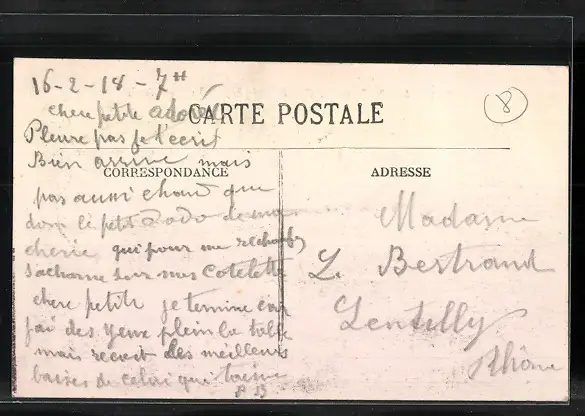 16-2-18 - 7H
chere petite adorée
CARTE POSTALE
Pleure pas je t'ecris
Bien arrivé mais
CORRESPONDANCE
pas aussi chaud que
dans le petit dodo de ma
cherie qui pour me rechauffer
s'acharne sur mes cotelette
chere petite je termine car
j'ai des yeux plein la tete
mais recoit des meilleurs
baises de celui qui t'aime
P B
8
ADRESSE
Madame
L. Bertrand
Lentilly
Rhône